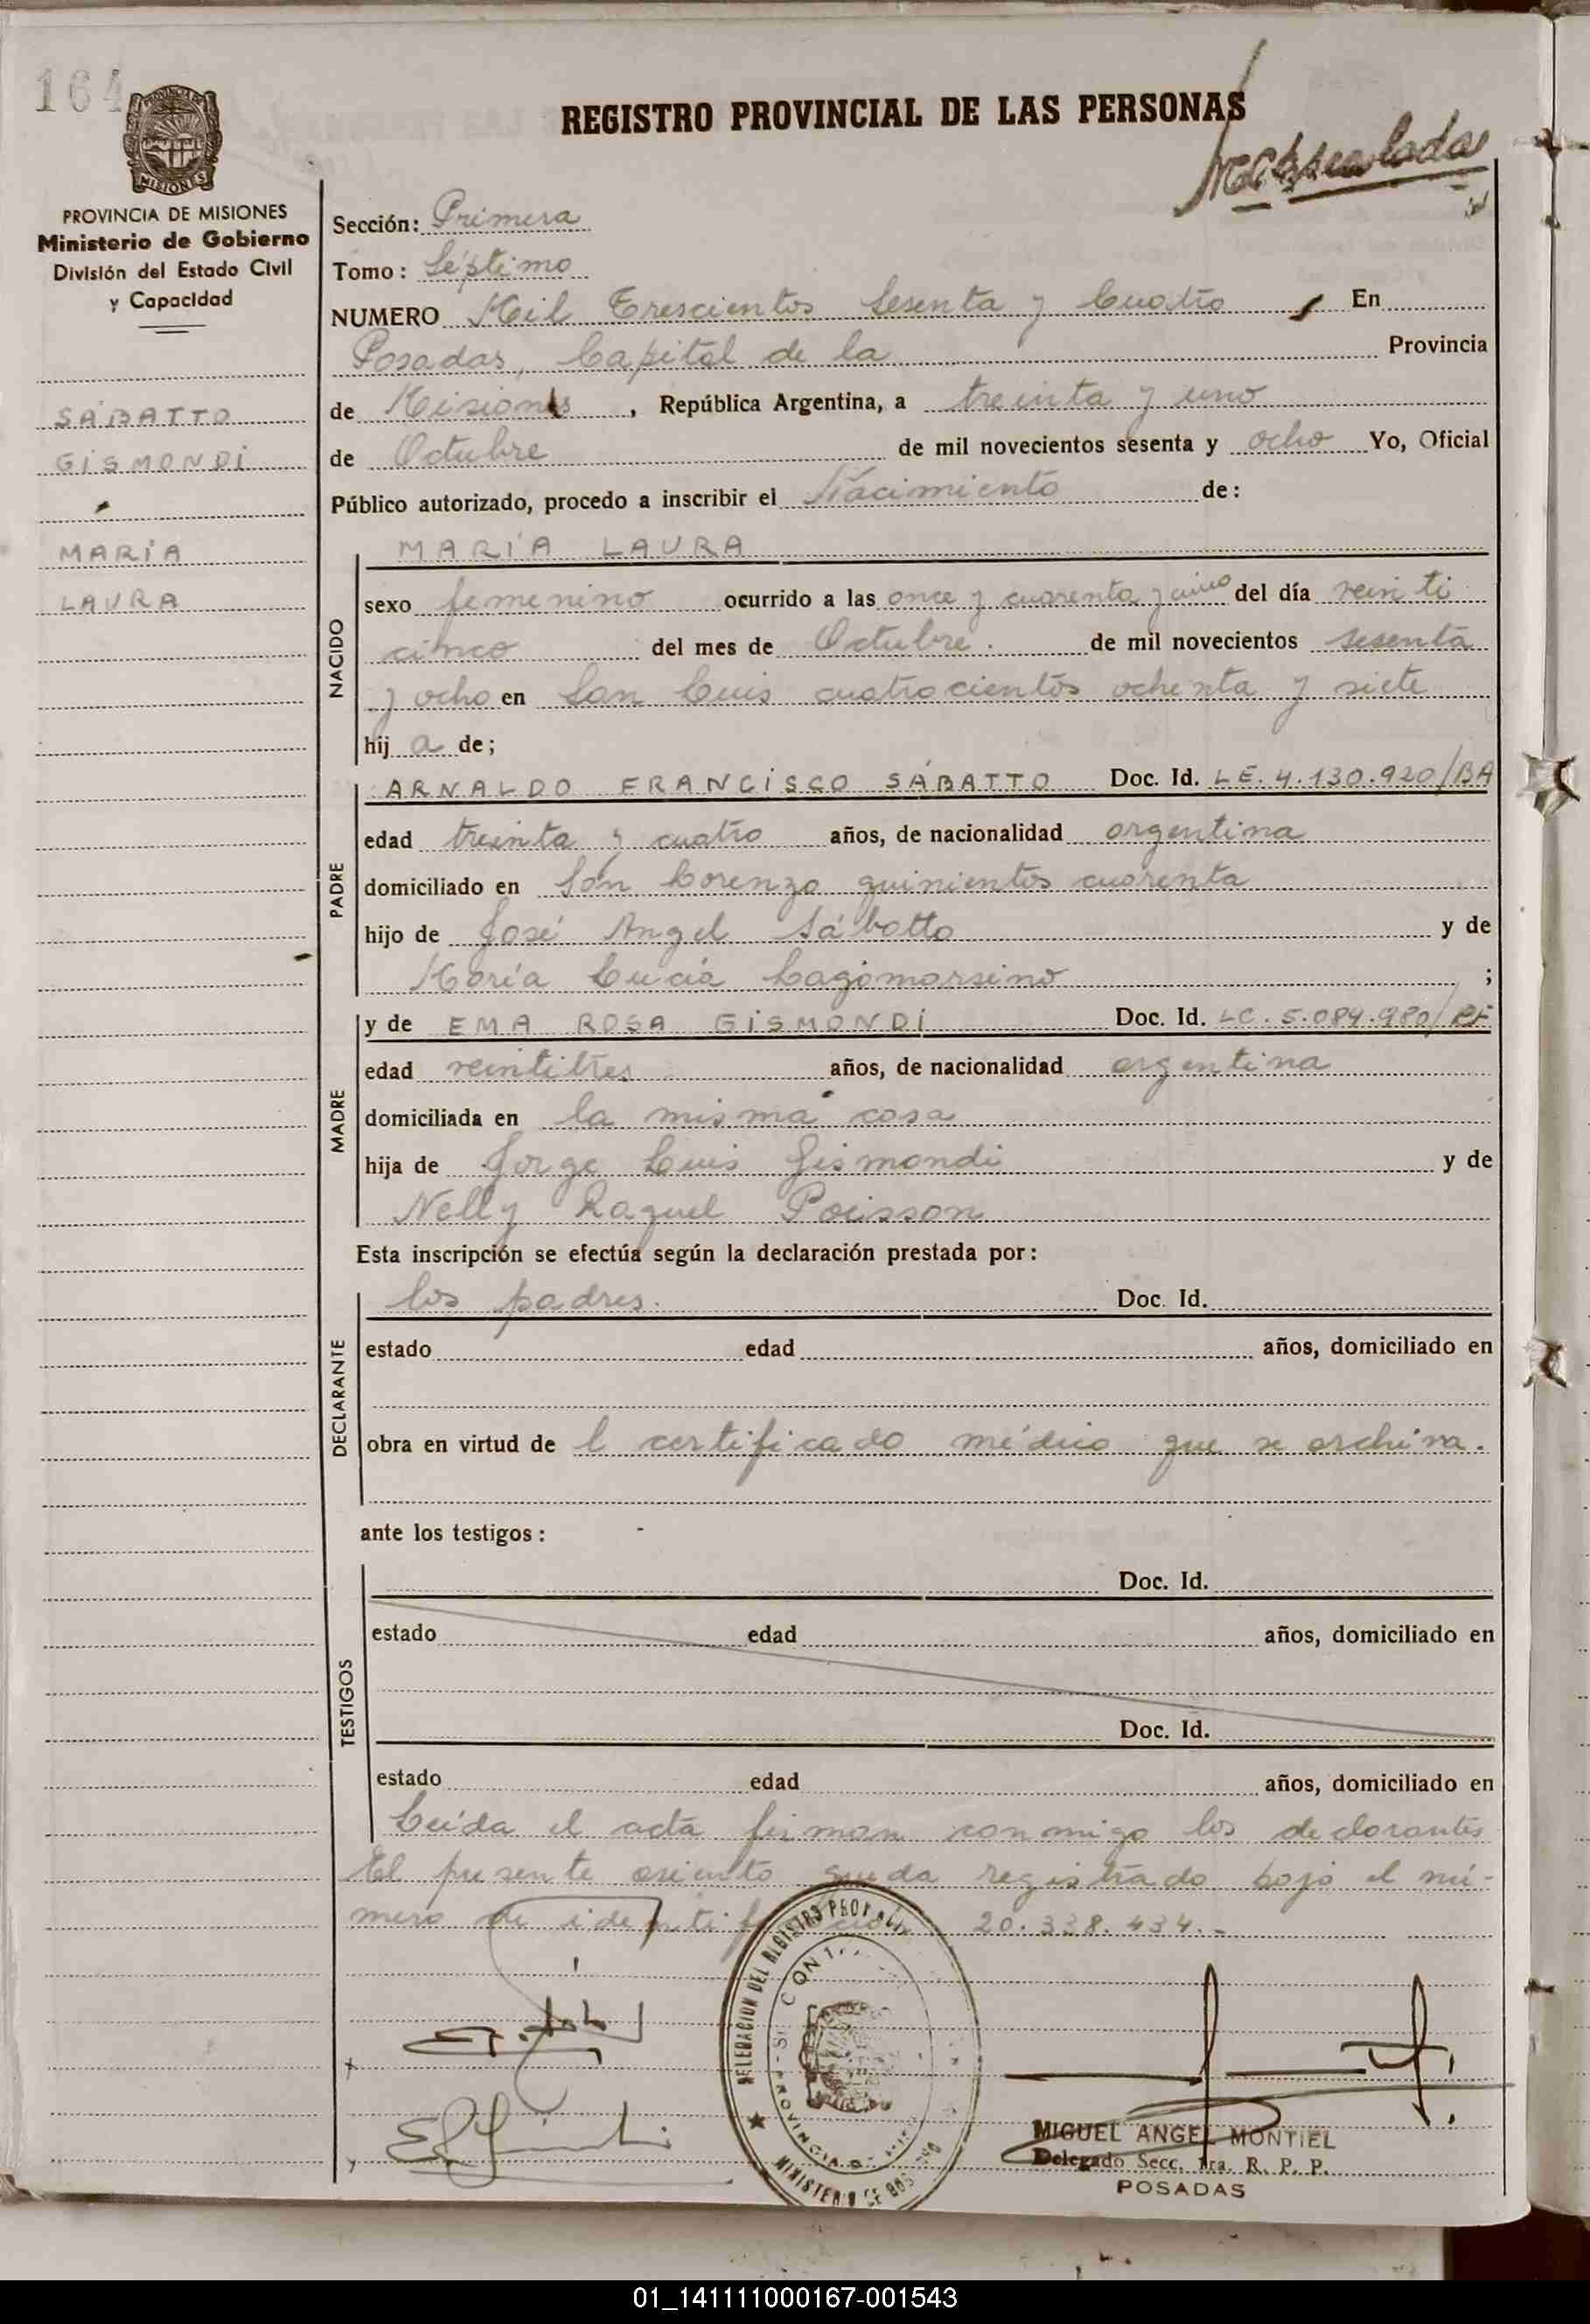 164
REGISTRO PROVINCIAL DE LAS PERSONAS
MISIONES
PROVINCIA DE MISIONES
Ministerio de Gobierno
División del Estado Civil
y Capacidad
Sección: Primera
Tomo: Séptimo
NUMERO Mil Trescientos Sesenta y Cuatro En
Posadas, Capital de la Provincia
SÁBATTO
GISMONDI
MARÍA
LAURA
de Misiones, República Argentina, a treinta y uno
de Octubre de mil novecientos sesenta y ocho Yo, Oficial
Público autorizado, procedo a inscribir el Nacimiento de:
NACIDO
MARÍA LAURA
sexo femenino ocurrido a las once y cuarenta y cinco del día veinti
cinco del mes de Octubre. de mil novecientos sesenta
y ocho en San Luis cuatrocientos ochenta y siete
hij a de;
PADRE
ARNALDO FRANCISCO SÁBATTO Doc. Id. LE. 4.130.920/BA
edad treinta y cuatro años, de nacionalidad argentina
domiciliado en San Lorenzo quinientos cuarenta
hijo de José Angel Sábatto y de
María Lucía Lagomarsino ;
MADRE
y de EMA ROSA GISMONDI Doc. Id. LC. 5.084.980/
edad veintitres años, de nacionalidad argentina
domiciliada en la misma casa
hija de Jorge Luis Gismondi y de
Nelly Raquel Poisson
Esta inscripción se efectúa según la declaración prestada por:
DECLARANTE
los padres. Doc. Id.
estado edad años, domiciliado en
obra en virtud de l certificado médico que se archiva.
ante los testigos:
TESTIGOS
Doc. Id.
estado edad años, domiciliado en
Doc. Id.
estado edad años, domiciliado en
Leída el acta firman conmigo los declarantes
El presente asiento queda registrado bajo el nú-
mero de identificación 20.338.434.-
MIGUEL ANGEL MONTIEL
Delegado Secc. 1ra. R. P. P.
POSADAS
01_141111000167-001543